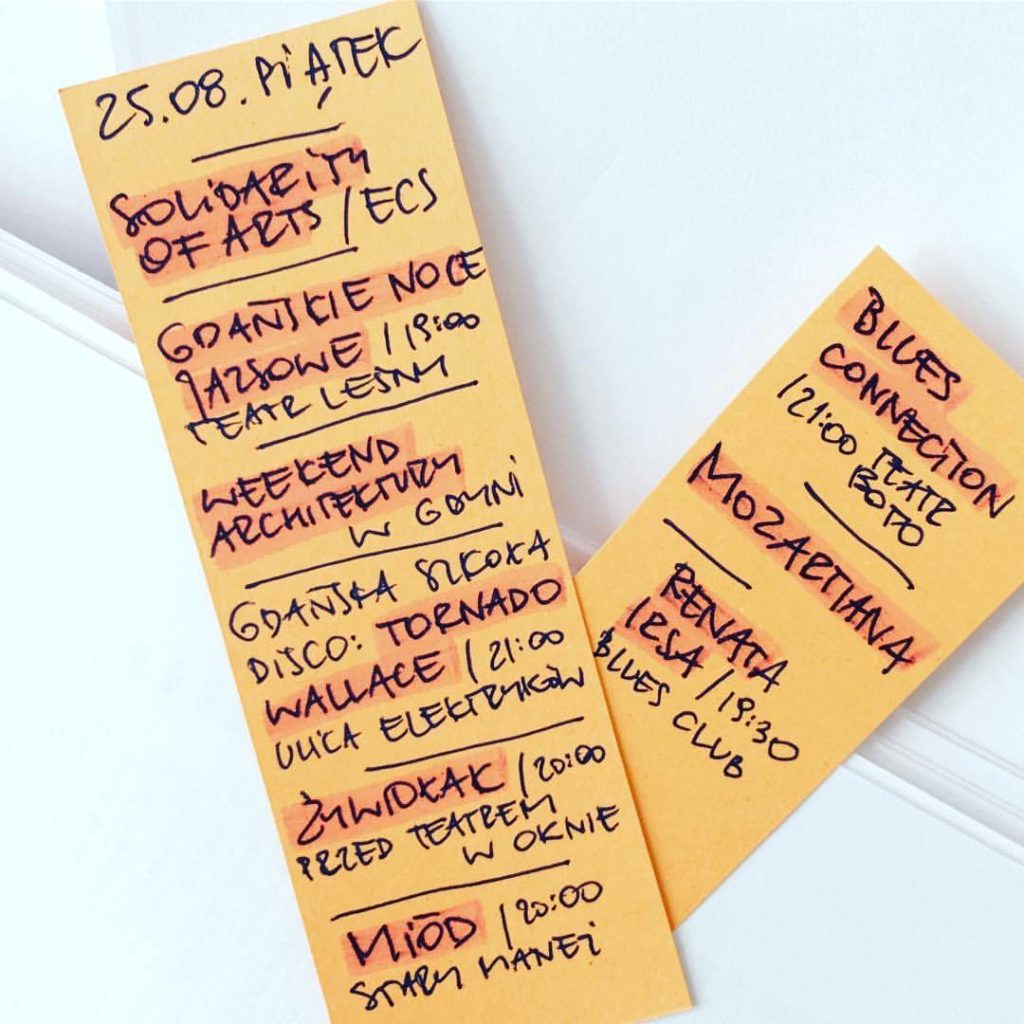 25.08. PIĄTEK
SOLIDARITY
OF ARTS / ECS
GDAŃSKIE NOCE
JAZZOWE / 19:00
TEATR LEŚNY
WEEKEND
ARCHITEKTURY
W GDYNI
GDAŃSKA SZKOŁA
DISCO: TORNADO
WALLACE / 21:00
ULICA ELEKTRYKÓW
ŻYWIOŁAK / 20:00
PRZED TEATREM
W OKNIE
MIÓD / 20:00
STARY MANEŻ
BLUES
CONNECITON
/ 21:00 TEATR
BOTO
MOZARTIANA
RENATA
IRSA / 19:30
BLUES CLUB